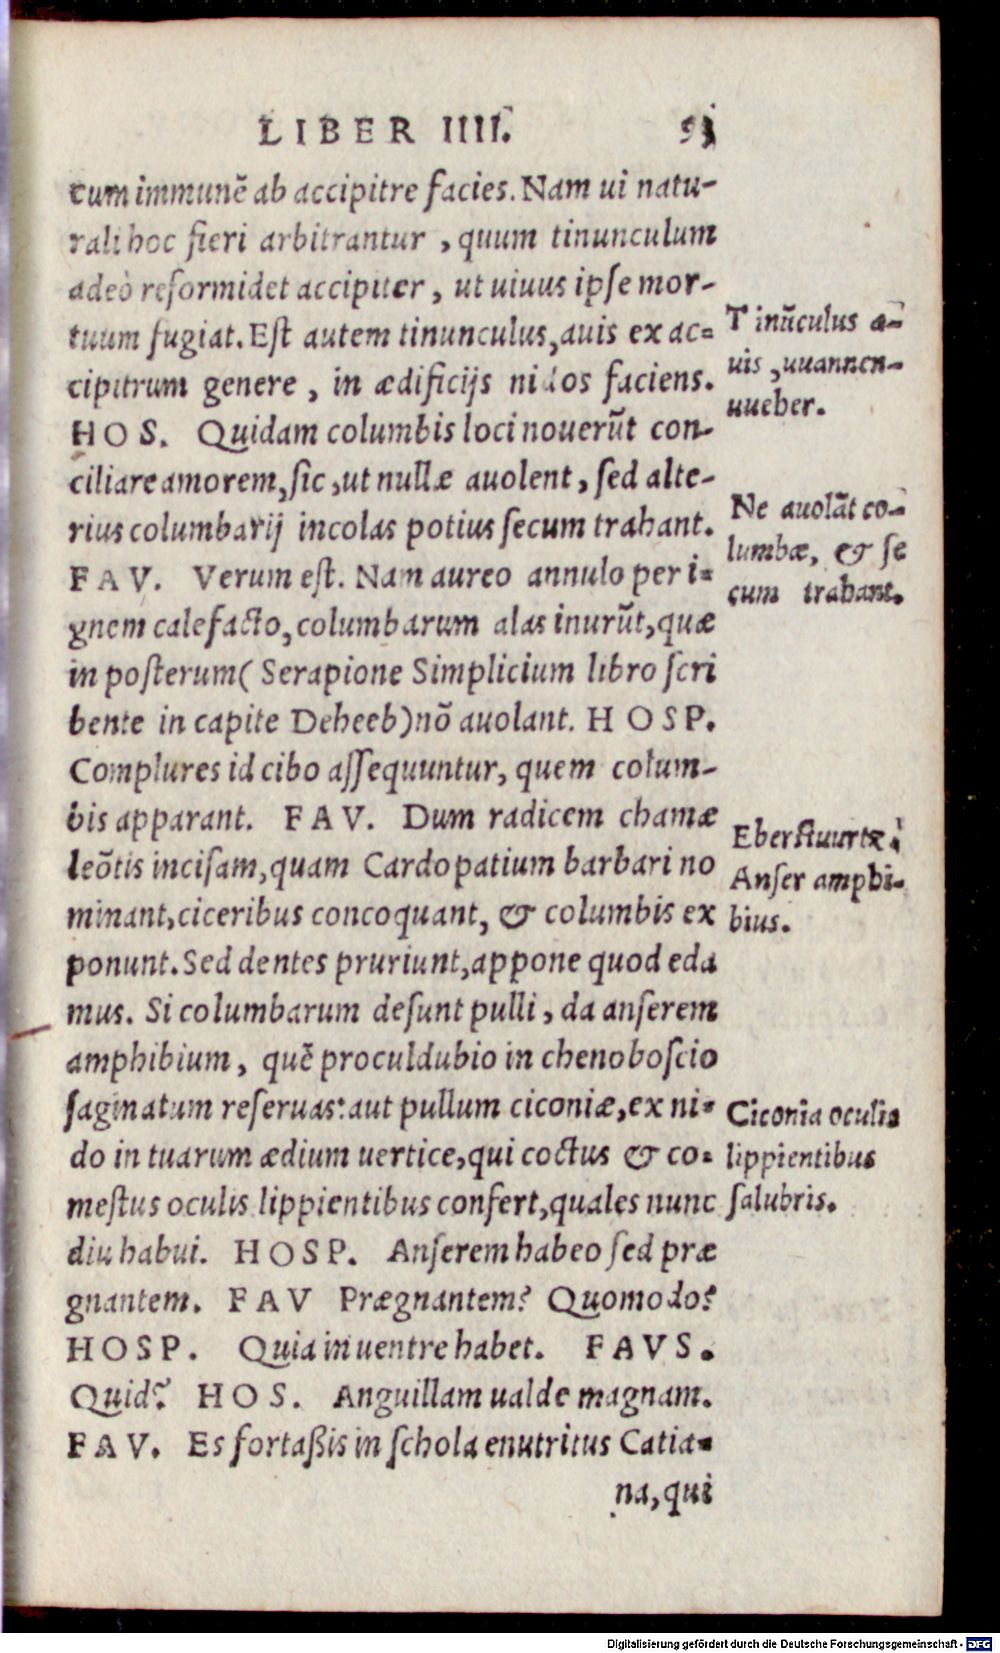 LIBER IIII. 51
cum immunē ab accipitre facies. Nam ui natu-
rali hoc fieri arbitrantur, quum tinunculum
adeò reformidet accipiter, ut uiuus ipse mor-
tuum fugiat. Est autem tinunculus, auis ex ac=
cipitrum genere, in ædificijs nidos faciens.
HOS. Quidam columbis loci nouerūt con-
ciliare amorem, sic, ut nullæ auolent, sed alte-
rius columbarij incolas potius secum trahant.
FAV. Verum est. Nam aureo annulo per i=
gnem calefacto, columbarum alas inurūt, quæ
in posterum (Serapione Simplicium libro scri
bente in capite Deheeb) nō auolant. HOSP.
Complures id cibo assequuntur, quem colum-
bis apparant. FAV. Dum radicem chamæ
leōtis incisam, quam Cardopatium barbari no
minant, ciceribus concoquant, & columbis ex
ponunt. Sed dentes pruriunt, appone quod eda
mus. Si columbarum desunt pulli, da anserem
amphibium, quē proculdubio in chenoboscio
saginatum reseruas: aut pullum ciconiæ, ex ni=
do in tuarum ædium uertice, qui coctus & co=
mestus oculis lippientibus confert, quales nunc
diu habui. HOSP. Anserem habeo sed præ
gnantem. FAV Prægnantem? Quomodo?
HOSP. Quia in uentre habet. FAVS.
Quid? HOS. Anguillam ualde magnam.
FAV. Es fortaßis in schola enutritus Catia=
na, qui
Tinūculus a-
uis, uuannen-
uueber.
Ne auolāt co-
lumbæ, & se
cum trahant.
Eberstuurtz
Anser amphi-
bius.
Ciconia oculis
lippientibus
salubris.
Digitalisierung gefördert durch die Deutsche Forschungsgemeinschaft - DFG